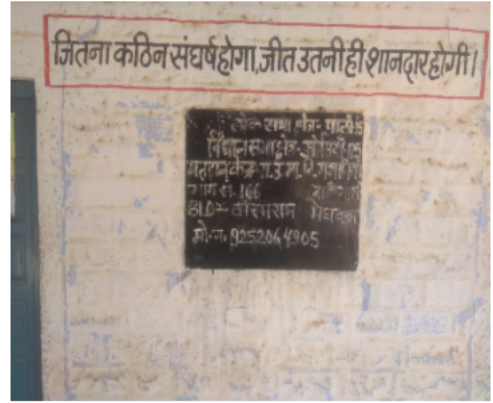 जितना कठिन संघर्ष होगा, जीत उतनी ही शानदार होगी।
लोक सभा क्षेत्र- पाली-15
विधानसभा क्षेत्र-
मतदान केन्द्र- रा.उ.मा.वि.
भाग सं. 166
B.L.O- मेघवाल
मो.न. 9252064905